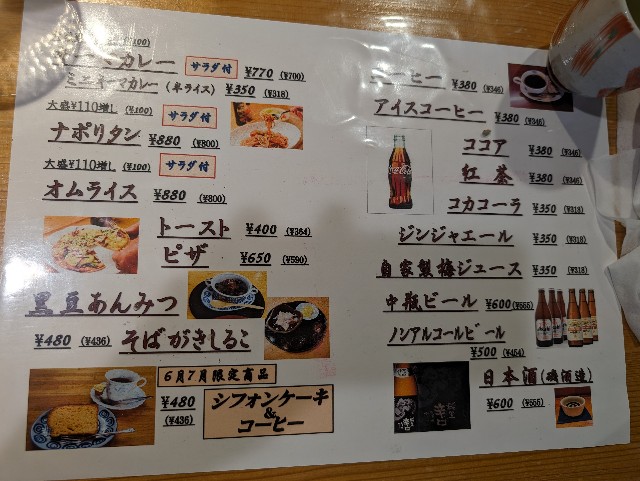 ¥100)
マカレー サラダ付 ¥770 (¥700)
ミニ マカレー (半ライス) ¥350 (¥318)
大盛¥110増し (¥100) サラダ付
ナポリタン ¥880 (¥800)
大盛¥110増し (¥100) サラダ付
オムライス ¥880 (¥800)
トースト ¥400 (¥364)
ピザ ¥650 (¥590)
黒豆あんみつ
¥480 (¥436) そばがきしるこ
6月7月限定商品
¥480 (¥436)
シフォンケーキ
&
コーヒー
コーヒー ¥380 (¥346)
アイスコーヒー ¥380 (¥346)
ココア ¥380 (¥346)
紅茶 ¥380 (¥346)
コカコーラ ¥350 (¥318)
ジンジャエール ¥350 (¥318)
自家製梅ジュース ¥350 (¥318)
中瓶ビール ¥600 (¥555)
ノンアルコールビール
¥500 (¥454)
日本酒(磯酒造)
¥600 (¥555)
Coca-Cola
辛口